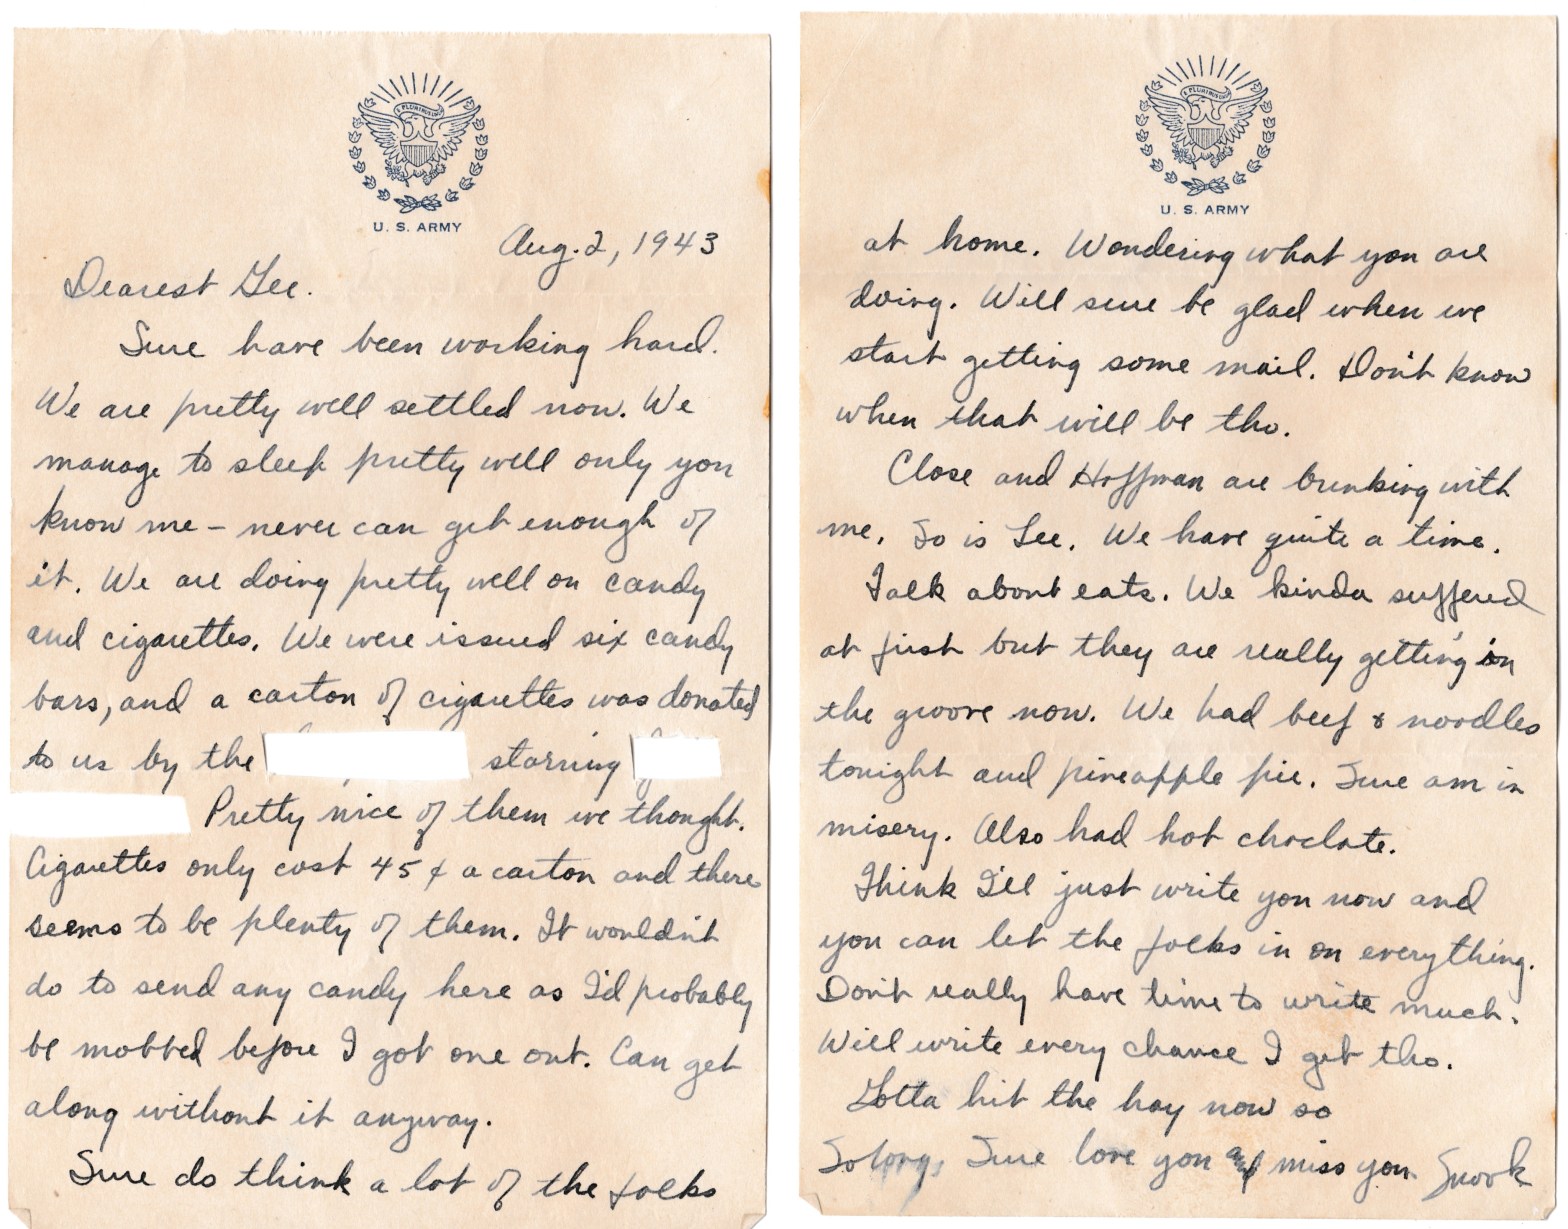 E PLURIBUS UNUM
U. S. ARMY
Aug. 2, 1943
Dearest Gee.
Sure have been working hard.
We are pretty well settled now. We
manage to sleep pretty well only you
know me – never can get enough of
it. We are doing pretty well on candy
and cigarettes. We were issued six candy
bars, and a carton of cigarettes was donated
to us by the starring
Pretty nice of them we thought.
Cigarettes only cost 45¢ a carton and there
seems to be plenty of them. It wouldn't
do to send any candy here as I'd probably
be mobbed before I got one out. Can get
along without it anyway.
Sure do think a lot of the folks
E PLURIBUS UNUM
U. S. ARMY
at home. Wondering what you are
doing. Will sure be glad when we
start getting some mail. Don't know
when that will be tho.
Close and Hoffman are bunking with
me. So is Lee. We have quite a time.
Talk about eats. We kinda suffered
at first but they are really getting in
the groove now. We had beef & noodles
tonight and pineapple pie. Sure am in
misery. Also had hot choclate.
Think I'll just write you now and
you can let the folks in on everything.
Don't really have time to write much.
Will write every chance I get tho.
Gotta hit the hay now so
So long, Sure love you and miss you. Snook